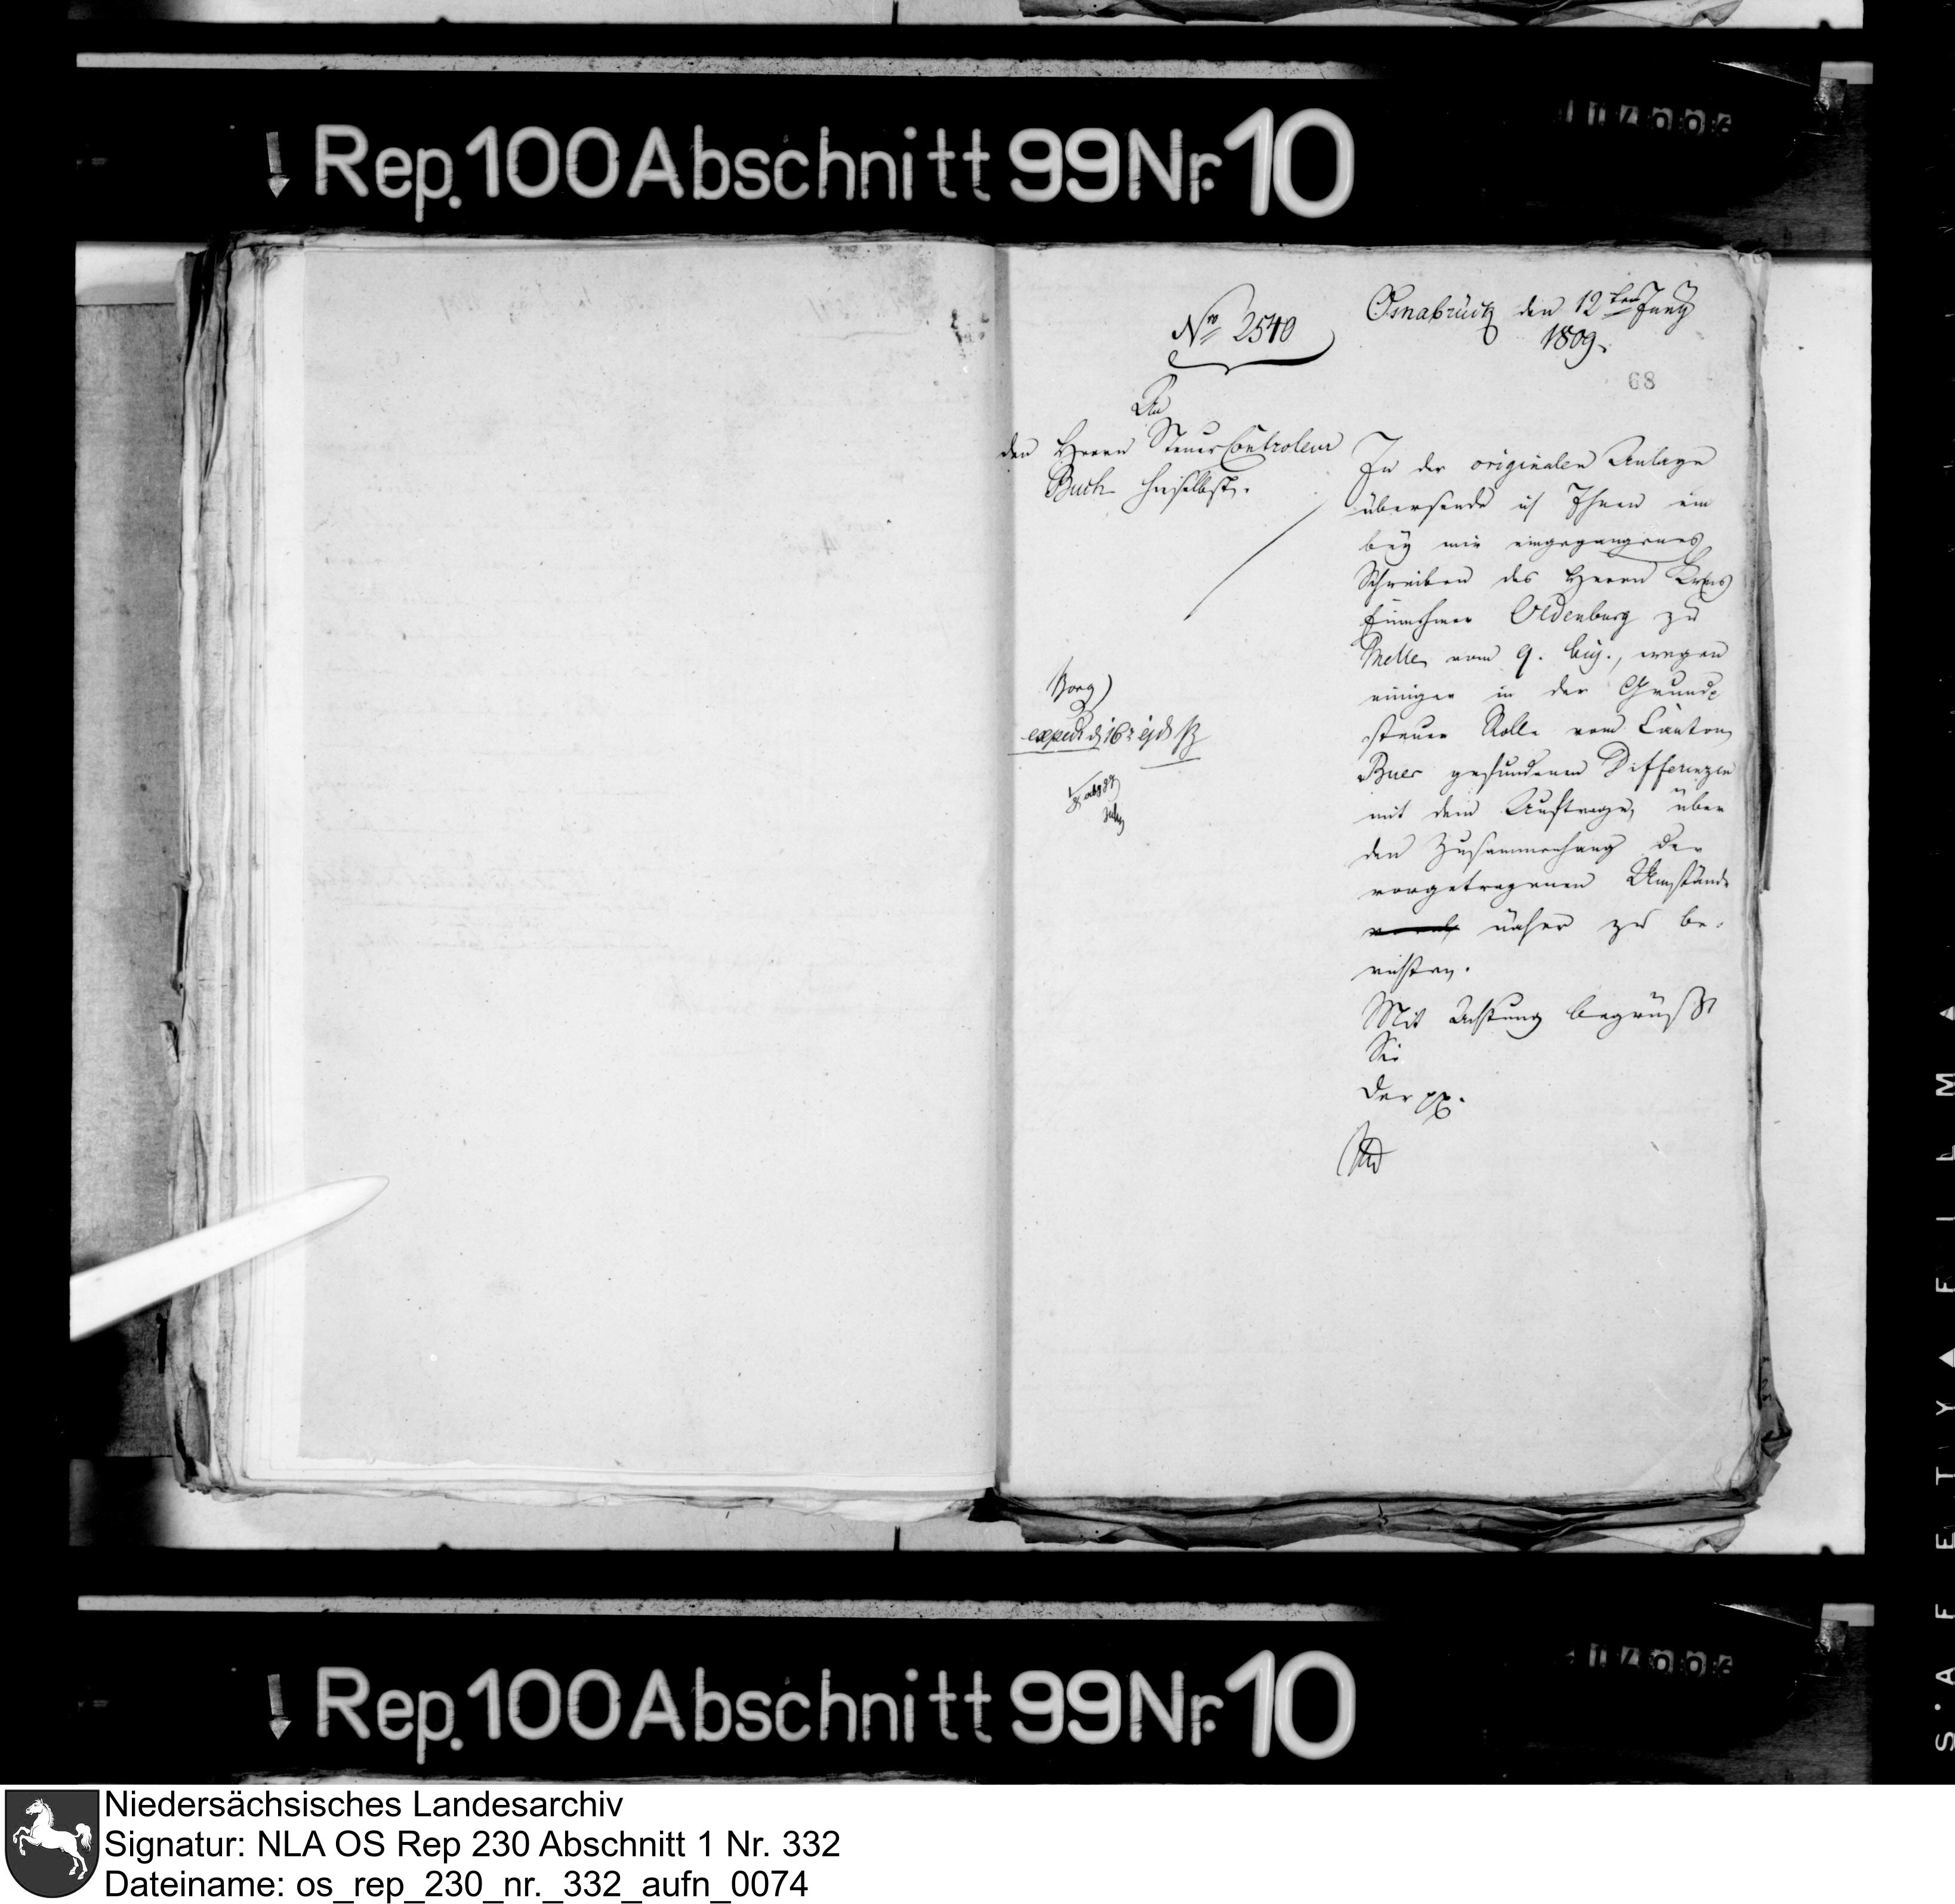 Rep. 100 Abschnitt 99 Nr. 10
Osnabrück den 12ten Juny
1809.
68
Nro 2540
An
den Herrn Steuer Controleur
Buch hieselbst.
In der originalen Anlage
übersende ich Ihnen ein
bey mir eingegangenes
Schreiben des Herrn Kreis
Einnehmer Oldenburg zu
Melle vom 9. huj., wegen
einiger in der Grund-
steuer Rolle vom Canton
Buer gefundenen Differenzen
mit dem Auftrage, über
den Zusammenhang der
vorgetragenen Umstände
näher zu be-
richten.
Mit Achtung begrüßt
Sie
der pp.
exped d 16 ejd
Rep. 100 Abschnitt 99 Nr. 10
SAFETY FILM
Niedersächsisches Landesarchiv
Signatur: NLA OS Rep 230 Abschnitt 1 Nr. 332
Dateiname: os_rep_230_nr._332_aufn_0074